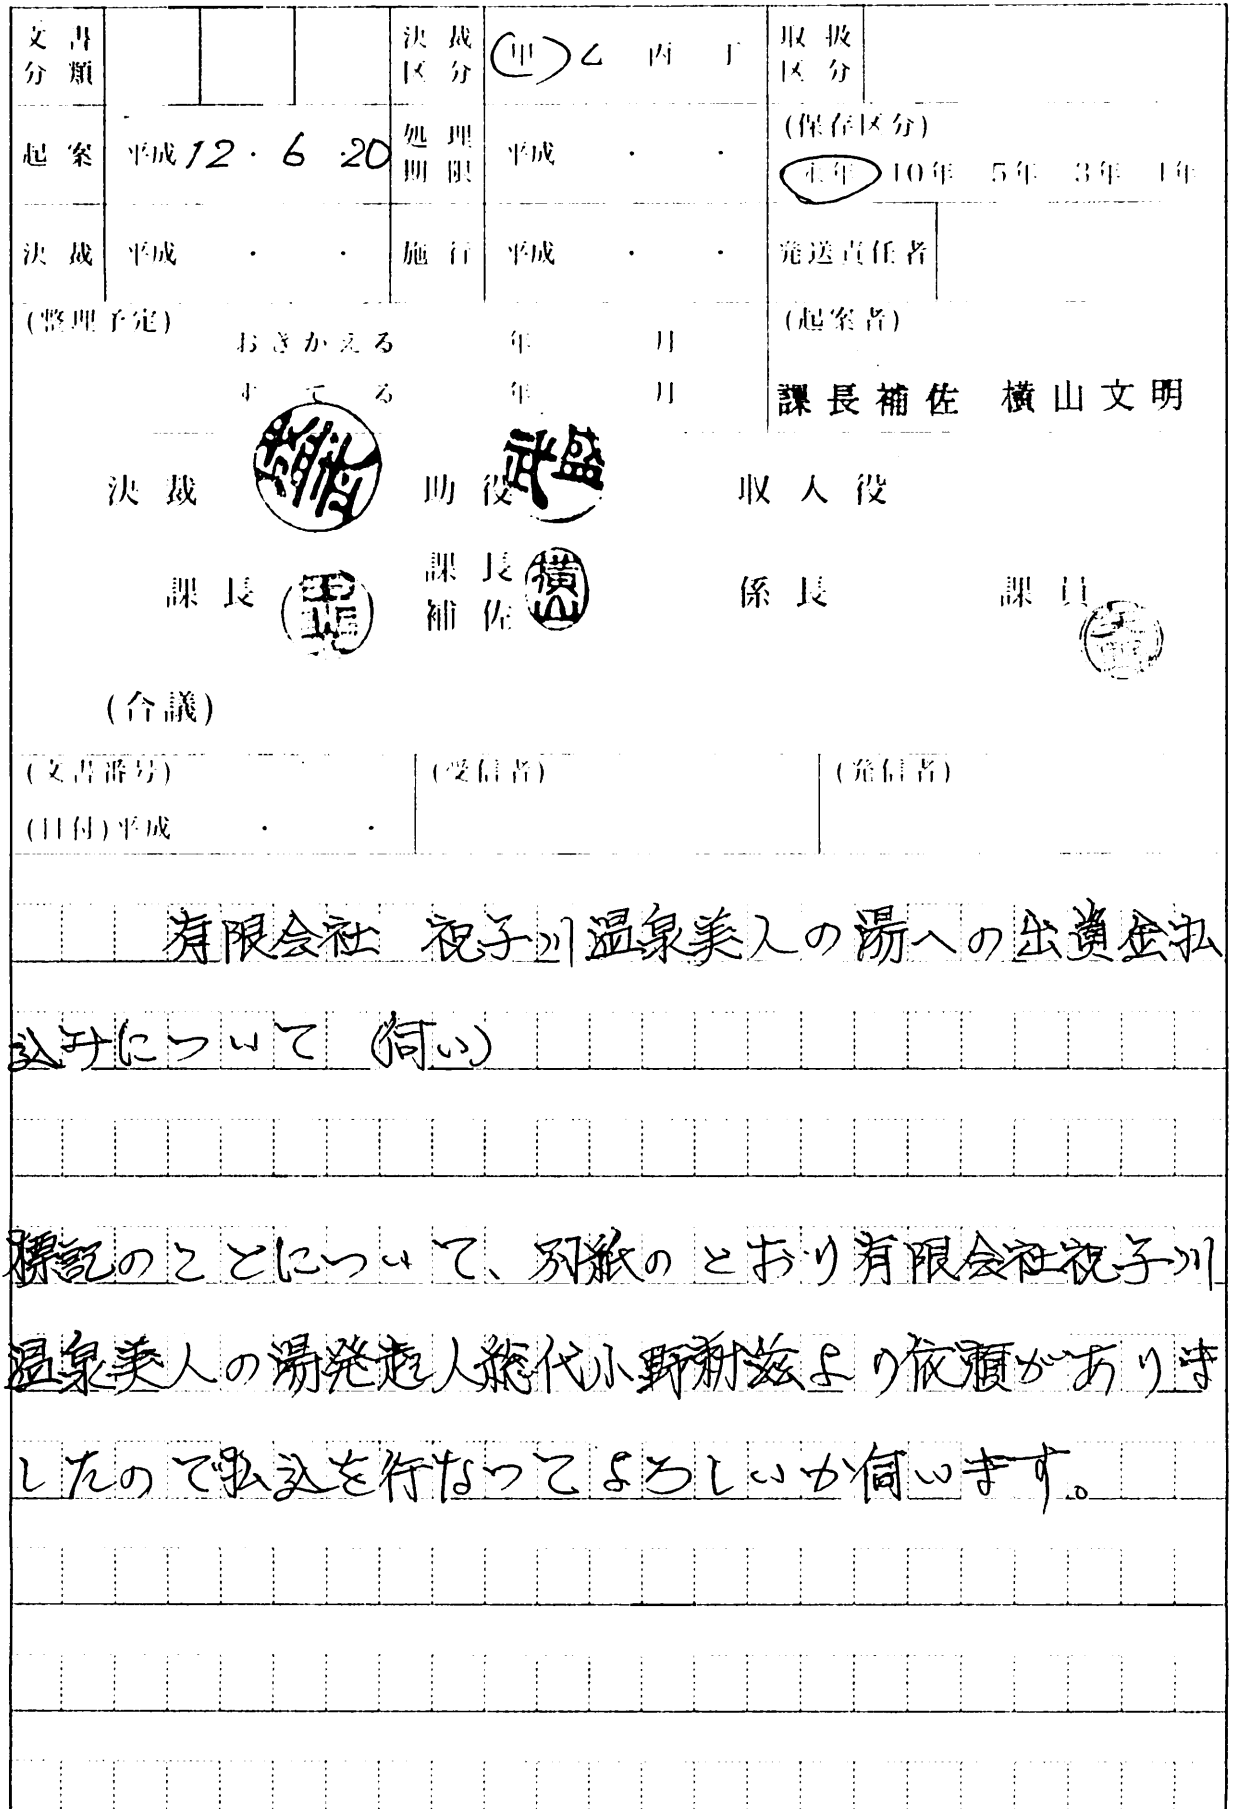 文書分類 決裁区分 甲 乙 丙 丁 取扱区分
起案 平成12・6・20 処理期限 平成 ・ ・ (保存区分)
永年 10年 5年 3年 1年
決裁 平成 ・ ・ 施行 平成 ・ ・ 発送責任者
(整理予定) おきかえる 年 月 (起案者)
すてる 年 月 課長補佐 横山文明
決裁 助役 収入役
課長 課長補佐 横山 係長 課員
(合議)
(文書番号) (受信者) (発信者)
(日付)平成 ・ ・
有限会社 祝子川温泉美人の湯への出資金払
込みについて (伺い)
標記のことについて、別紙のとおり有限会社祝子川
温泉美人の湯発起人総代小野耕滋より依頼がありま
したので払込を行なってよろしいか伺います。